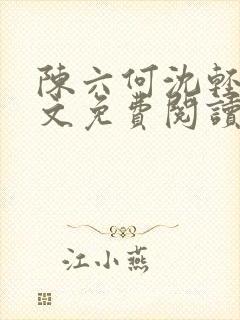 陳六何沈輕
文免費閱讀
江小燕